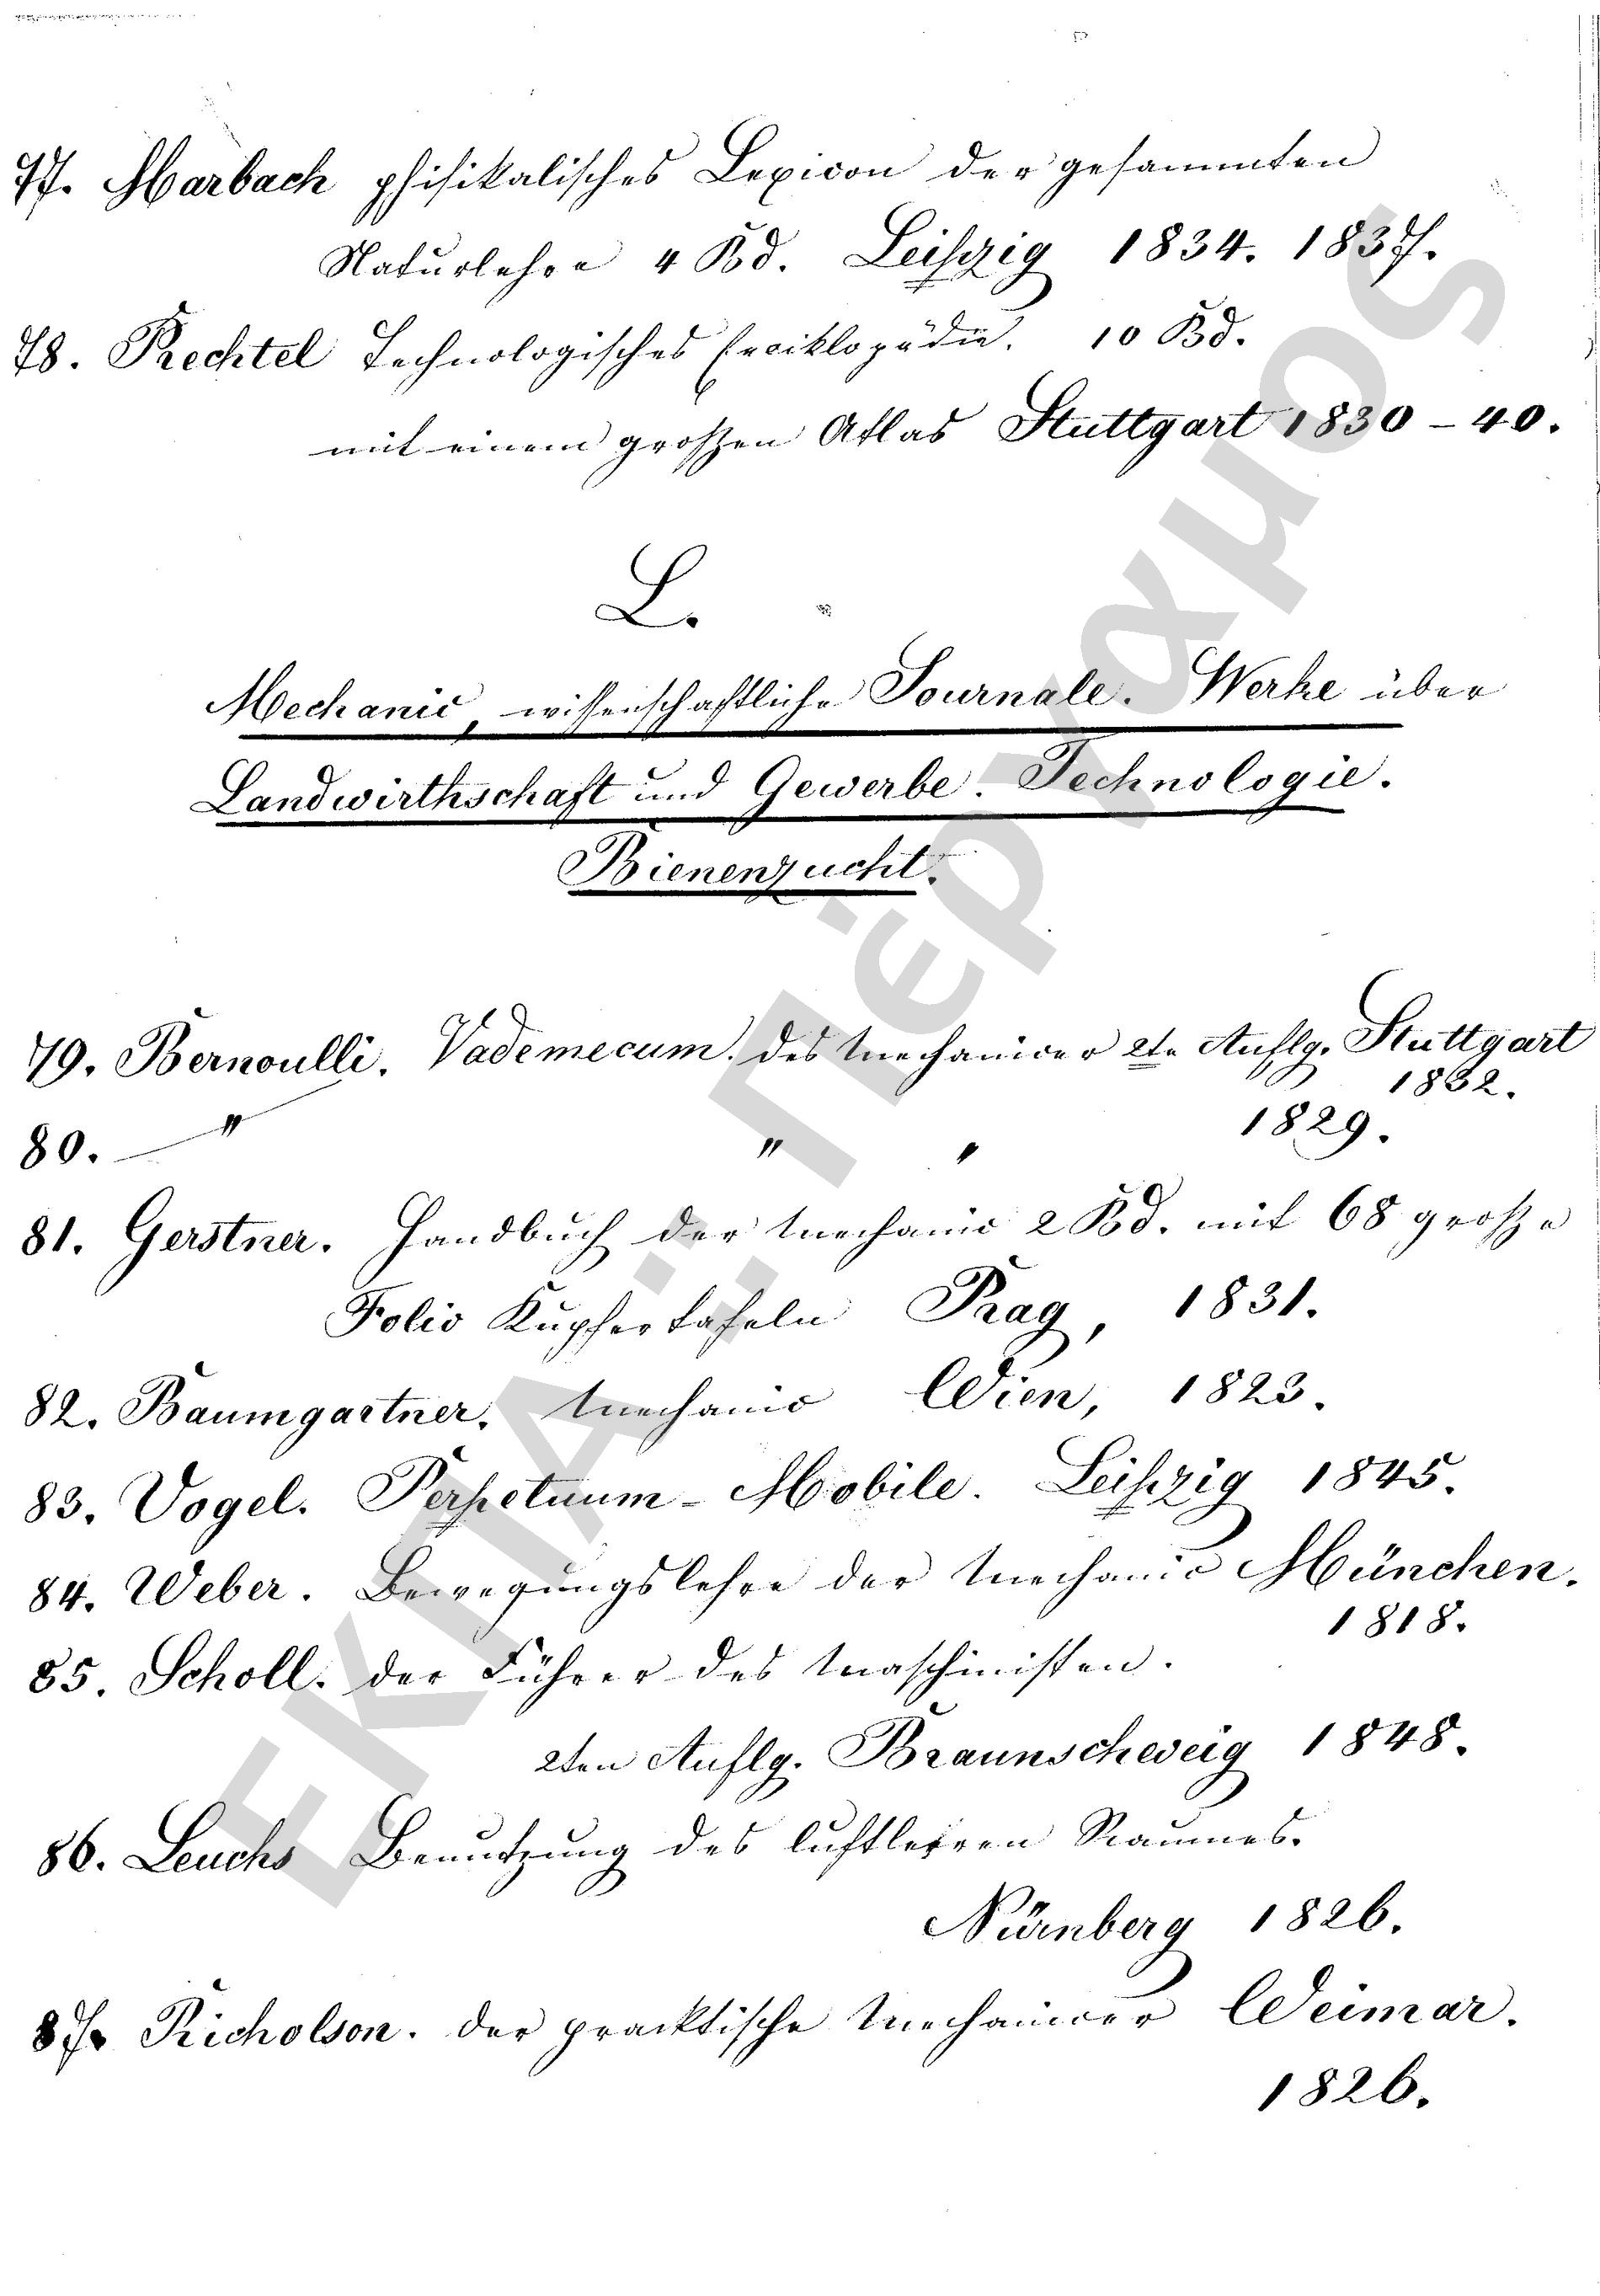 77. Marbach phisikalisches Lexicon der gesammten
Naturlehre 4 Bd. Leipzig 1834. 1837.
78. Prechtel Technologisches Enciklopädie. 10 Bd.
mit einem groszen Atlas Stuttgart 1830 – 40.
L.
Mechanic, wissenschaftliche Journale. Werke über
Landwirthschaft und Gewerbe. Technologie.
Bienenzucht.
79. Bernoulli. Vademecum des Mechanicer 2te Auflg. Stuttgart
1832.
80. — " " " 1829.
81. Gerstner. Handbuch der Mechanic 2 Bd. mit 68 grosze
Folio Kupfertafeln Prag, 1831.
82. Baumgartner. Mechanic Wien, 1823.
83. Vogel. Perpetuum - Mobile. Leipzig 1845.
84. Weber. Bewegungslehre der Mechanic München.
1818.
85. Scholl. der Führer des Maschinisten.
2ten Auflg. Braunschweig 1848.
86. Leuchs Benutzung des luftleeren Raumes.
Nürnberg 1826.
87. Richolson. der pracktische Mechanicer Weimar.
1826.
ΕΚΠΑ.: Πέργαμος